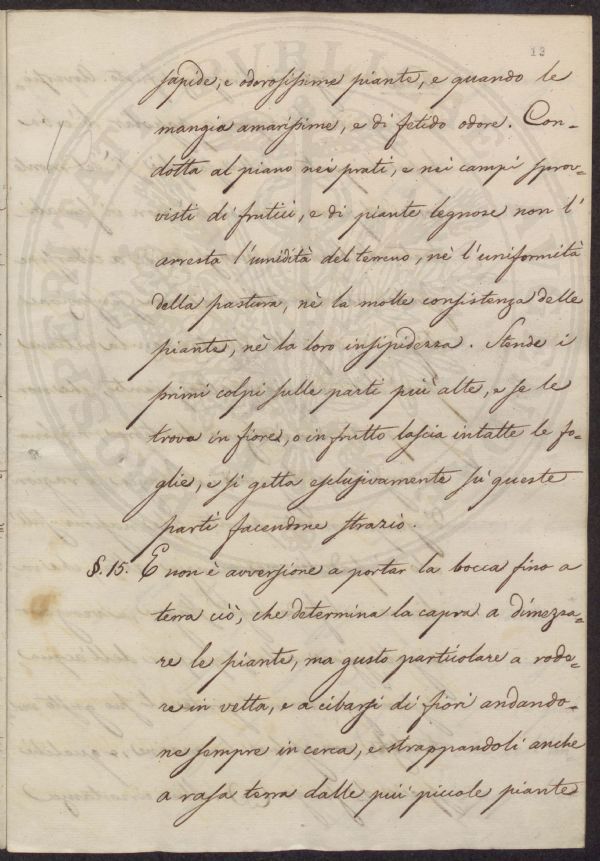 13
sapide, e odorosissime piante, e quando le
mangia amarissime, e di fetido odore. Con-
dotta al piano nei prati, e nei campi sprov-
visti di frutici, e di piante legnose non l'
arresta l'umidità del terreno, nè l'uniformità
della pastura, nè la molle consistenza delle
piante, nè la loro insipidezza. Stende i
primi colpi sulle parti più alte, e se le
trova in fiore, o in frutto lascia intatte le fo-
glie, e si getta esclusivamente su queste
parti facendone strazio.
§. 15. E non è avversione a portar la bocca fino a
terra ciò, che determina la capra a dimezza-
re le piante, ma gusto particolare a rode-
re in vetta, e a cibarsi di fiori andando-
ne sempre in cerca, e strappandoli anche
a rasa terra dalle più piccole piante